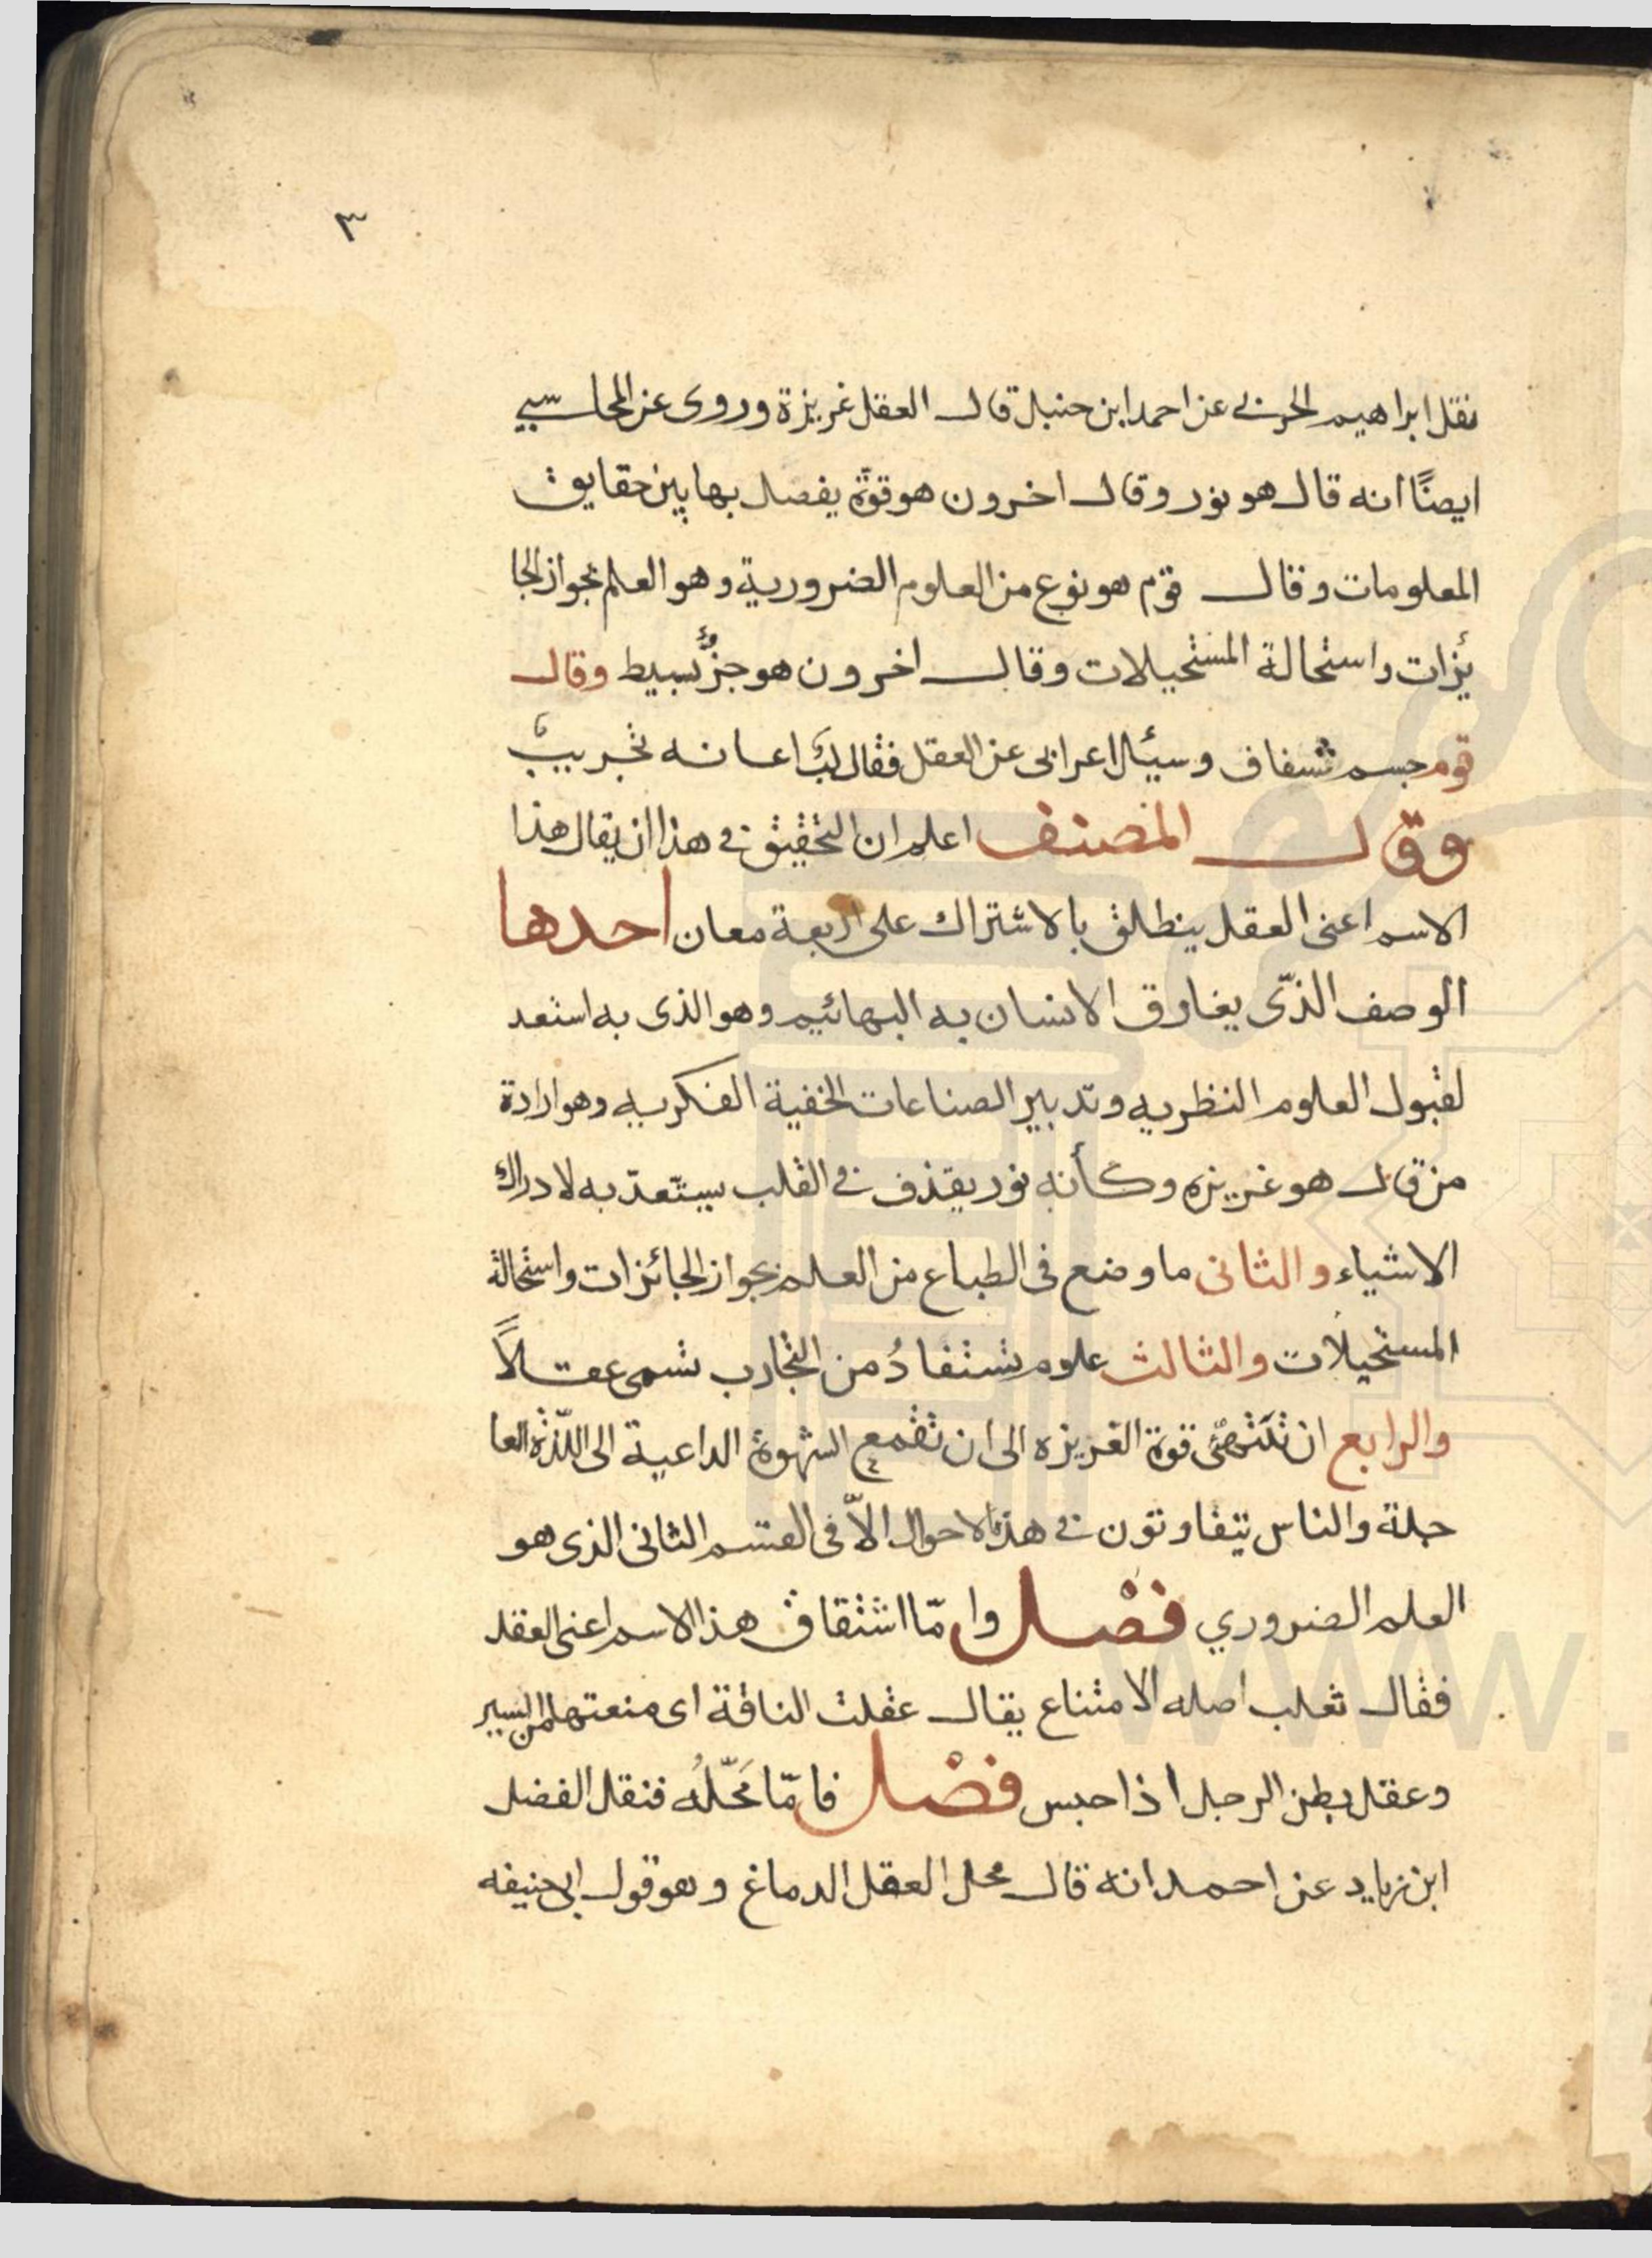 ٣
نقل ابراهيم الحربي عن احمد ابن حنبل قال العقل غريزة وروى عن المحاسبي
ايضًا انه قال هو نور وقال اخرون هو قوة يفصل بها بين حقايق
المعلومات وقال قوم هو نوع من العلوم الضرورية وهو العلم بجواز الجا
ئزات واستحالة المستحيلات وقال اخرون هو جزؤ بسيط وقال
قوم جسم شفاف وسئل اعرابى عن العقل فقال لبّ اعانه تجريبٌ
وقال المصنف اعلم ان التحقيق في هذا ان يقال هذا
الاسم اعنى العقل ينطلق بالاشتراك على اربعة معان احدها
الوصف الذّى يفارق الانسان به البهائيم وهو الذى به استعد
لقبول العلوم النظريه وتدبير الصناعات الخفية الفكريه وهو ارادة
من قال هو غريزه وكأنه نور يقذف في القلب يستّعدّ به لادراك
الاشياء والثانى ما وضع فى الطباع من العلم بجواز الجائزات واستحالة
المستحيلات والثالث علوم تستفادُ من التجارب تسمى عقلاً
والرابع ان تنتهىٔ قوة الغريزه الى ان تقمع الشهوة الداعية الى اللّذة العا
جلة والناس يتفاوتون في هذه الاحوال الاّ فى القسم الثانى الذى هو
العلم الضروري فصْل وامّا اشتقاق هذا الاسم اعنى العقل
فقال ثعلب اصله الامتناع يقال عقلت الناقة اى منعتها من السير
وعقل بطن الرجل اذا حبس فصْل فامّا مَحَلّلُه فنقل الفضل
ابن زياد عن احمد انه قال محل العقل الدماغ وهو قول ابى حنيفه